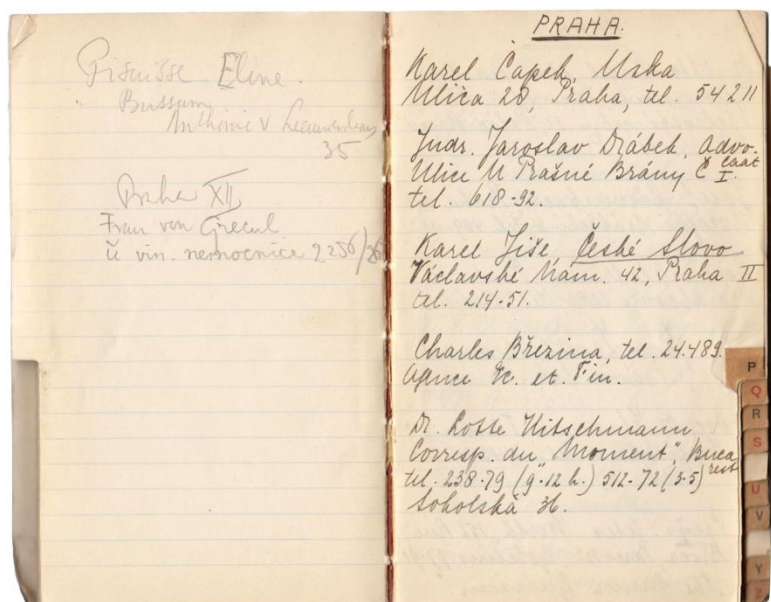 Pisuisse Eline.
Bussum
Anthonie v Leeuwenhoek
35
Praha XII
Frau von
u vin. nemocnice 2256/
PRAHA.
Karel Čapek, Uzka
Ulica 28, Praha, tel. 54211
Judr. Jaroslav Drábek, advo-
caat
Ulice U Prašné Brány Č I.
tel. 618-92.
Karel Jiše, České Slovo
Václavské Nám. 42, Praha II
tel. 214-51.
Charles Březina, tel. 24.489.
Agence Ec. et. Fin.
Dr. Lotte Hitschmann
Corresp. du "Moment", Buca
rest
tel. 238-79 (9-12 h.) 512-72 (3-5)
Sokolská 36.
P
Q
R
S
U
V
Y